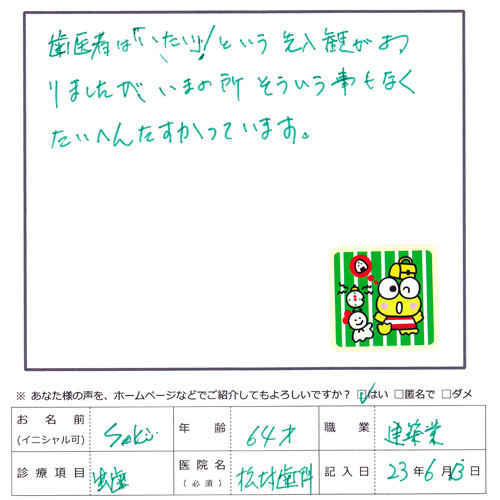 歯医者は「いたい」！という先入観があ
りましたが いまの所 そういう事もなく
たいへんたすかっています。
※ あなた様の声を、ホームページなどでご紹介してもよろしいですか？ ☑はい □匿名で □ダメ
お名前 (イニシャル可) Seki 年齢 64才 職業 建築業
診療項目 虫歯 医院名 (必須) 松村歯科 記入日 23年6月13日